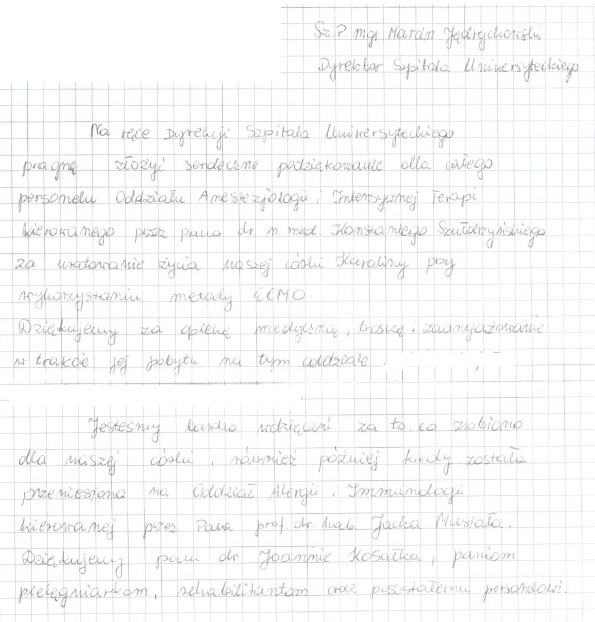 Sz.P. mgr Marcin Jędrychowski
Dyrektor Szpitala Uniwersyteckiego
Na ręce Dyrekcji Szpitala Uniwersyteckiego
pragnę złożyć serdeczne podziękowanie dla całego
personelu Oddziału Anestezjologii i Intensywnej Terapi
kierowanego przez pana dr. n. med. Konstantego Szułdrzyńskiego
za uratowanie życia naszej córki Karoliny przy
wykorzystaniu metody ECMO.
Dziękujemy za opiekę medyczną, troskę, zaangażowanie
w trakcie jej pobytu na tym oddziale.
Jesteśmy bardzo wdzięczni za to co zrobiono
dla naszej córki, również później kiedy została
przeniesiona na Oddział Alergii i Immunologii
kierowanej przez Pana prof. dr. hab. Jacka Musiała.
Dziękujemy pani dr Joannie Kosałka, paniom
pielęgniarkom, rehabilitantom oraz pozostałemu personelowi.